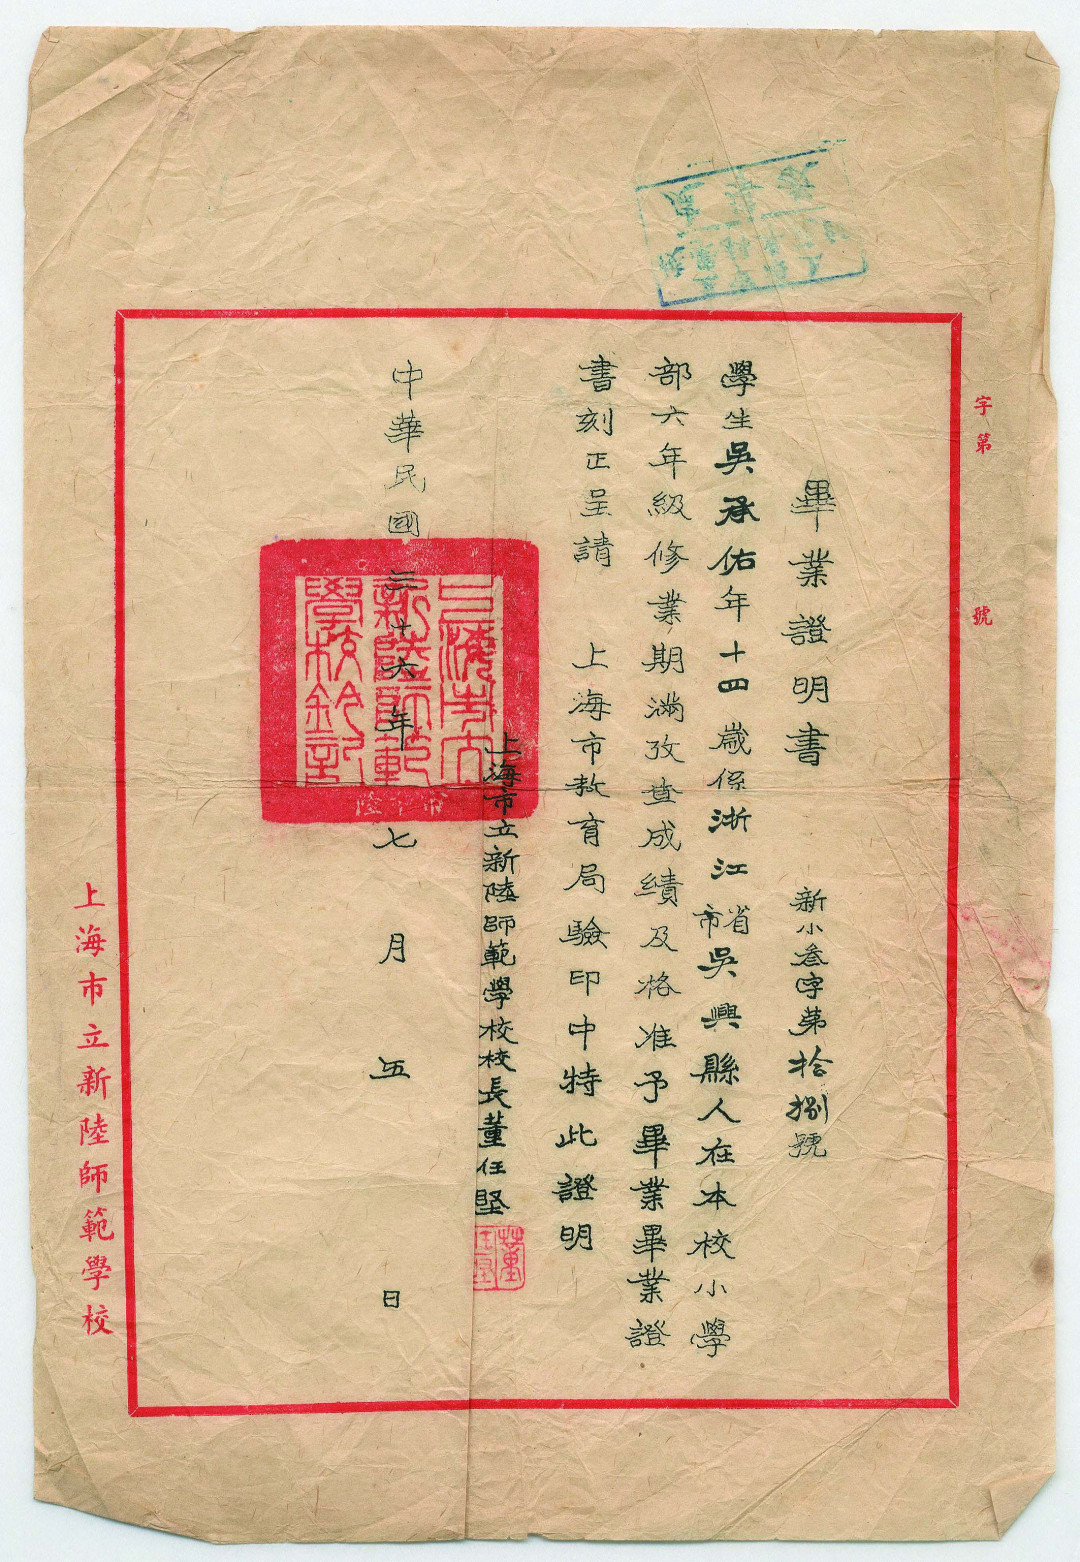 字第　號
畢業證明書　新小叁字第拾捌號
學生吳承佑年十四歲係浙江省市吳興縣人在本校小學
部六年級修業期滿攷查成績及格准予畢業畢業證
書刻正呈請　上海市教育局驗印中特此證明
上海市立新陸師範學校校長董任堅
中華民國三十六年七月五日
上海市立新陸師範學校
上海市立
新陸師範
學校鈐記